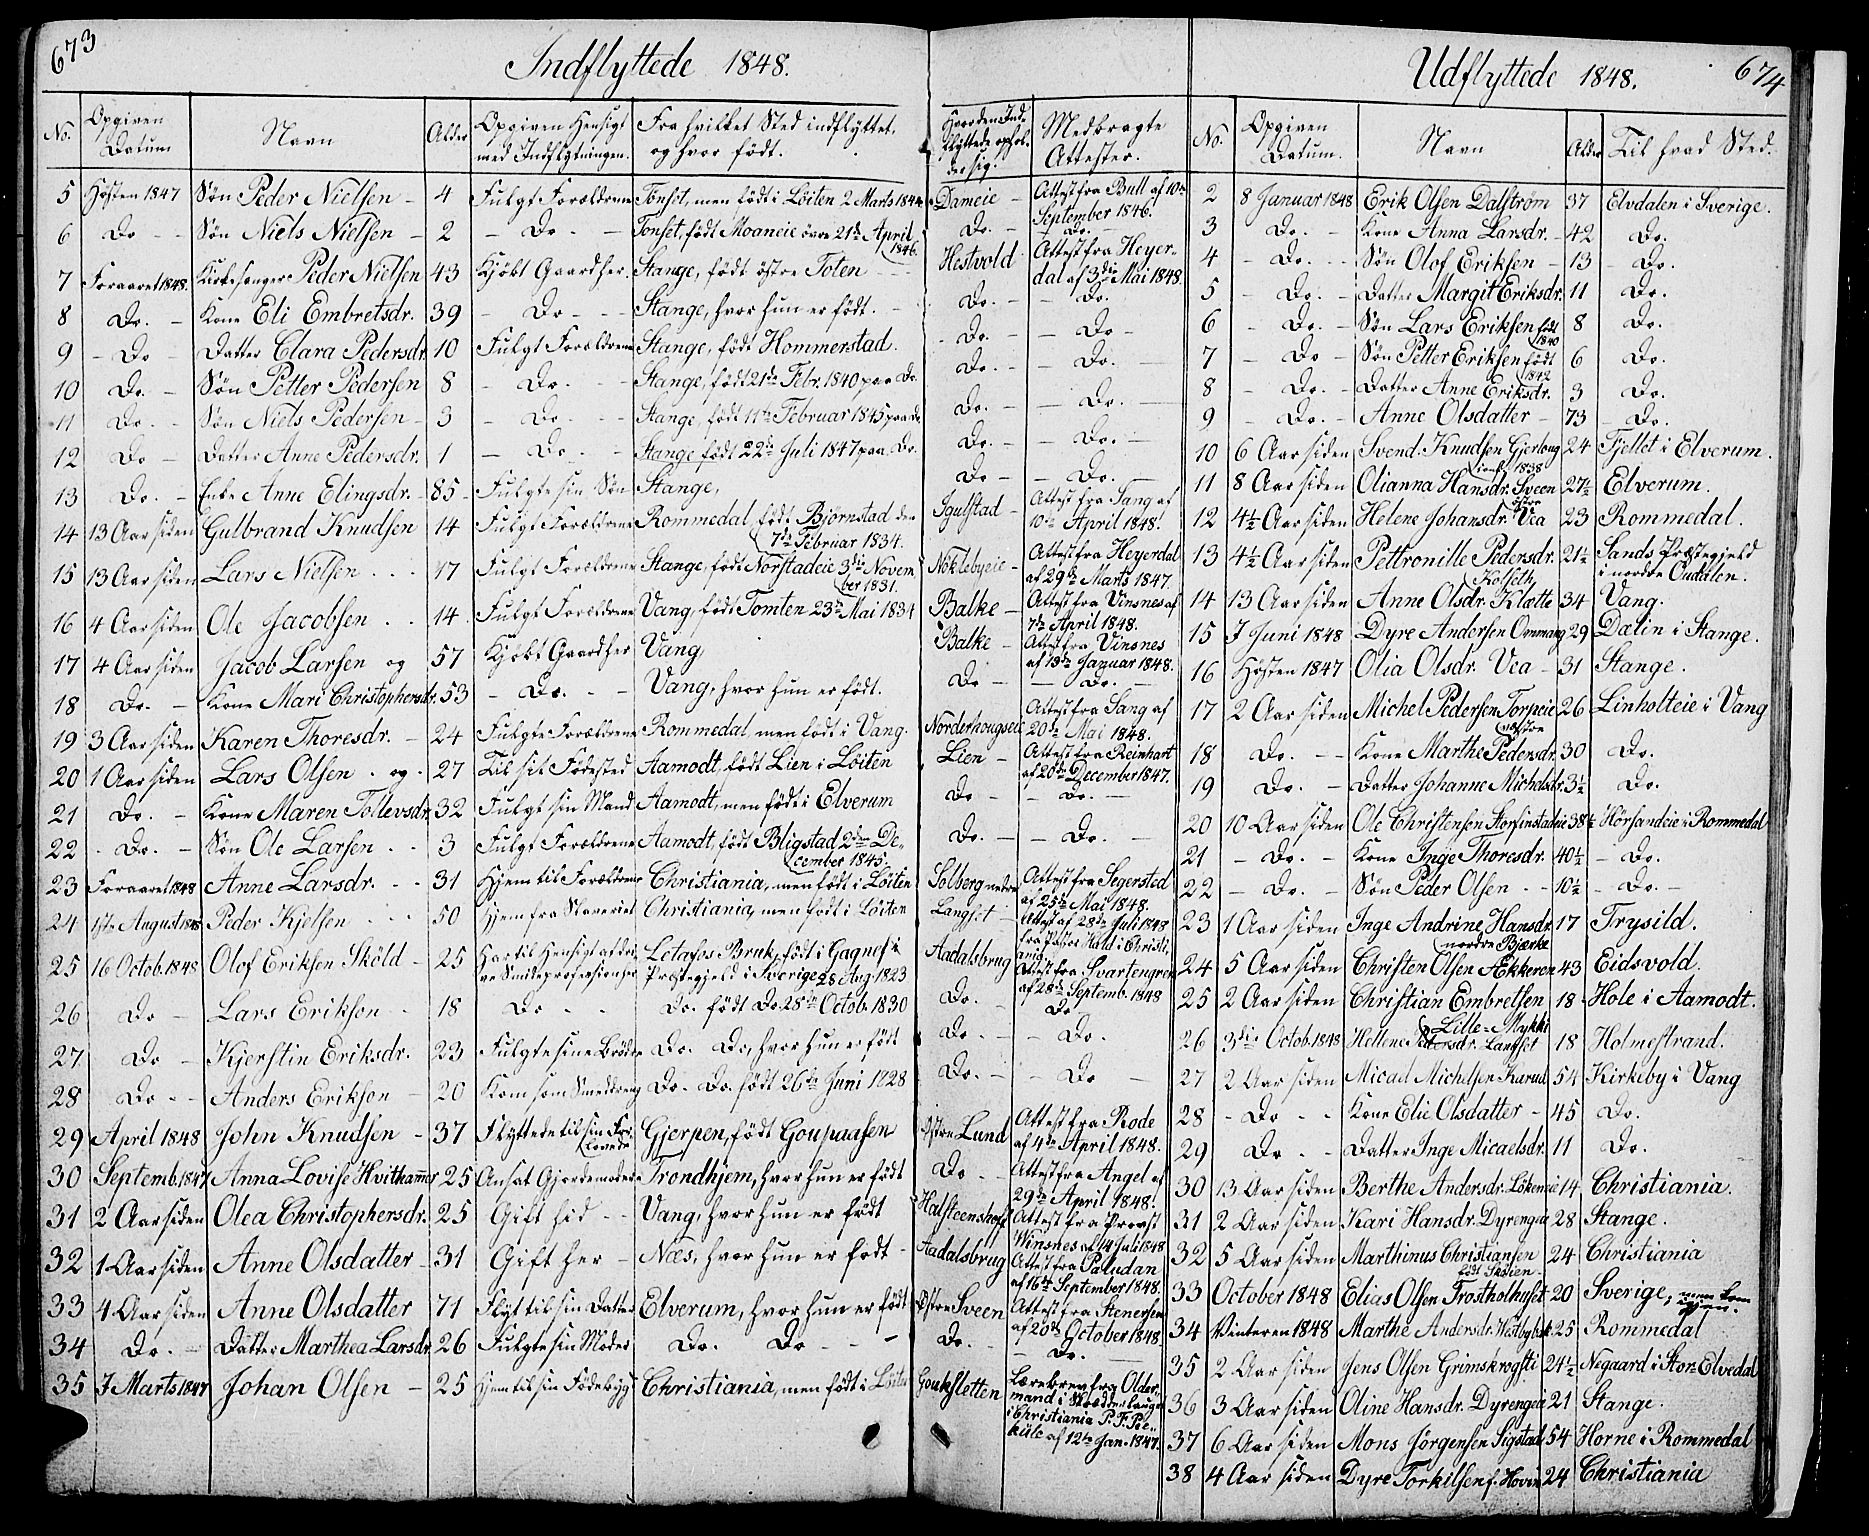 673
Indflyttede 1848.
No. | Opgiven Datum | Navn | Alder | Opgiven Hensigt med Indflytningen. | Fra hvilket Sted indflyttet, og hvor født. | Hvor den Indflyttede opholder sig. | Medbragte Attester.
5 | Høsten 1847 | Søn Peder Nielsen | 4 | Fulgt Forældrene | Tonset, men født i Løiten 2 Marts 1844 | Dameie | Attest fra Bull af 10de September 1846.
6 | Do | Søn Niels Nielsen | 2 | Do | Tonset, født Moaneie øvre 21de April 1846. | Do. | Do.
7 | Foraaret 1848. | Kirkesanger Peder Nielsen | 43 | Kjøbt Gaard her | Stange, født østre Toten | Hestvold | Attest fra Heyerdal af 3die Mai 1848.
8 | Do. | Kone Eli Embretsdr. | 39 | Do | Stange, hvor hun er født. | Do. | Do.
9 | Do | Datter Clara Pedersdr. | 10 | Fulgt Forældrene | Stange, født Hommerstad. | Do. | Do
10 | Do. | Søn Petter Pedersen | 8 | Do. | Stange, født 21de Febr. 1840 paa Do. | Do. | Do.
11 | Do. | Søn Niels Pedersen | 3 | Do. | Stange, født 11te Februar 1845 paa do | Do. | Do.
12 | Do | Datter Anne Pedersdr. | 1 | Do. | Stange født 22de Juli 1847 paa Do. | Do. | Do.
13 | Do. | Enke Anne Elingsdr. | 85 | Fulgte sin Søn | Stange, | Do | Do.
14 | 13 Aar siden | Gulbrand Knudsen | 14 | Fulgt Forældrene | Rommedal, født Bjørnstad den 7de Februar 1834. | Igulstad | Attest fra Tang af 10de April 1848.
15 | 13 Aar siden | Lars Nielsen | 17 | Fulgt Forældrene | Stange, født Norstadeie 3die November 1831. | Nøklebyeie | Attest fra Heyerdal af 29de Marts 1847.
16 | 4 Aar siden | Ole Jacobsen | 14 | Fulgt Forældrene | Vang, født Tomten 23de Mai 1834 | Balke | Attest fra Vinsnes af 7de April 1848.
17 | 4 Aar siden | Jacob Larsen og | 57 | Kjøbt Gaard her | Vang, | Balke | Attest fra Vinsnes af 13de Januar 1848.
18 | Do. | Kone Mari Christophersdr. | 53 | Do. | Vang, hvor hun er født. | Do | Do.
19 | 3 Aar siden | Karen Thoresdr. | 24 | Fulgte Forældrene | Rommedal men født i Vang. | Norderhougseie | Attest fra Sang af 20de Mai 1848.
20 | 1 Aar siden | Lars Olsen og | 27 | Til sit Fødested | Aamodt, født Lien i Løiten | Lien | Attest fra Reinhart af 20de December 1847.
21 | Do. | Kone Maren Tollevsdr. | 32 | Fulgt sin Mand | Aamodt, men født i Elverum | Do | Do.
22 | Do. | Søn Ole Larsen | 3 | Fulgt Forældrene | Aamodt, født Bligstad 2den December 1845. | Do. | Do.
23 | Foraaret 1848 | Anne Larsdr. | 31 | Hjem til Forældrene | Christiania, men født i Løiten | Solberg nedre | Attest fra Segersted af 25de Mai 1848.
24 | 1ste August 1848 | Peder Kjelsen | 50 | Hjem fra Slaveriet | Christiania, men født i Løiten | Langset | Attest af 28de Juli 1848 fra Pastor Hald i Christiania.
25 | 16 Octob. 1848 | Olof Eriksen Sköld | 25 | Har til Hensigt at drive Smedeprofessionen | Letafos Bruk, født i Gagnef Præstegjeld i Sverige 28 Aug 1823 | Aadalsbrug | Attest fra Svartengren af 28de Septemb. 1848
26 | Do | Lars Eriksen | 18 | Do | Do. født Do. 28de Octob. 1830 | Do. | Do.
27 | Do | Kjerstin Eriksdr. | 23 | Fulgte sine Brødre | Do. Do, hvor hun er født | Do | Do.
28 | Do | Anders Eriksen | 20 | Kom som Smeddreng | Do. Do. født 26de Juni 1828 | Do. | Do
29 | April 1848 | John Knudsen | 37 | Flyttede til sin Forlovede | Gjerpen, født Goupaasen | Østre Lund | Attest fra Rode af 4de April 1848.
30 | Septemb. 1847 | Anna Lovise Hvithammer | 25 | Ansat Gjordemoder | Trondhjem, hvor hun er født | Do | Attest fra Angel af 29de April 1848.
31 | 2 Aar siden | Olea Christophersdr. | 25 | Gift hid | Vang, hvor hun er født | Halsteenshoff | Attest fra Provst Winsnes af 14 Juli 1848
32 | 1 Aar siden | Anne Olsdatter | 31 | Gift her | Næs, hvor hun er født | Aadalsbrug | Attest fra Paludan af 16de September 1848.
33 | 4 Aar siden | Anne Olsdatter | 71 | Flyt til sin Datter | Elverum, hvor hun er født | Østre Sveen | Attest fra Stenersen af 20de October 1848
34 | Do. | Datter Marthea Larsdr. | 26 | Fulgte sin Moder | Do. Do | Do. | Do.
35 | 7 Marts 1847 | Johan Olsen | 25 | Hjem til sin Fødebygd | Christiania, men født i Løiten | Goukstetten | Lærebrev fra Oldermand i Skrædderlauget i Christiania P. F. af 12te Jan. 1847.
674
Udflyttede 1848.
No. | Opgiven Datum. | Navn | Alder | Til hvad Sted.
2 | 8 Januar 1848 | Erik Olsen Dalstrøm | 37 | Elvdalen i Sverige.
3 | Do. | Kone Anna Larsdr. | 42 | Do.
4 | Do. | Søn Olof Eriksen | 13 | Do.
5 | Do. | Datter Margit Eriksdr. | 11 | Do.
6 | Do. | Søn Lars Eriksen født 1840 | 8 | Do.
7 | Do | Søn Petter Eriksen født 1842 | 6 | Do.
8 | Do. | Datter Anne Eriksdr. | 3 | Do.
9 | Do. | Anne Olsdatter | 73 | Do.
10 | 6 Aar siden | Svend Knudsen Gjerloug | 24 | Fjellet i Elverum.
11 | 8 Aar siden | Olianna Hansdr. Sveen conf. 1838 | 27½ | Elverum.
12 | 4½ Aar siden | Helene Johansdr. østre Vea | 23 | Rommedal.
13 | 4½ Aar siden | Pettronille Pedersdr. Kolseth | 21½ | Sands Præstegjeld i nordre Oudalen.
14 | 13 Aar siden | Anne Olsdr. Klætte | 34 | Vang.
15 | 7 Juni 1848 | Dyre Andersen Ommang | 29 | Dælin i Stange.
16 | Høsten 1847 | Olia Olsdr. Vea | 31 | Stange.
17 | 2 Aar siden | Michel Pedersen Torpeie | 26 | Linholteie i Vang
18 | Do. | Kone Marthe Pedersdr. | 30 | Do.
19 | Do. | Datter Johanne Michelsdr. | 3½ | Do.
20 | 10 Aar siden | Ole Christensen Storfinstadeie | 38½ | Hørsandeie i Rommedal
21 | Do. | Kone Inge Thoresdr. | 40½ | Do.
22 | Do. | Søn Peder Olsen | 10½ | Do.
23 | 1 Aar siden | Inge Andrine Hansdr. nordre Bjerke | 17 | Trysild.
24 | 5 Aar siden | Christen Olsen Ækkeren | 43 | Eidsvold.
25 | 2 Aar siden | Christian Embretsen Lille-Mykki | 18 | Hole i Aamodt.
26 | 3die Octob. 1848 | Hellene Pedersdr. Langset | 18 | Holmestrand.
27 | 2 Aar siden | Micael Michelsen Karud | 54 | Kirkeby i Vang
28 | Do | Kone Elie Olsdatter | 45 | Do.
29 | Do. | Datter Inge Micaelsdr. | 11 | Do.
30 | 13 Aar siden | Berthe Andersdr. Løkenie | 14 | Christiania.
31 | 2 Aar siden | Kari Hansdr. Dyrengeie | 28 | Stange.
32 | 5 Aar siden | Marthinus Christiansen født Skøien | 24 | Christiania
33 | October 1848 | Elias Olsen Frostholhuset | 20 | Sverige, men kom igjen.
34 | Vinteren 1848 | Marthe Andersdr. | 25 | Rommedal
35 | 2 Aar siden | Jens Olsen Grimskrogsti | 24½ | Negaard i Stor-Elvedal
36 | 3 Aar siden | Oline Hansdr. Dyrengeie | 21 | Stange.
37 | 6 Aar siden | Mons Jørgensen Sigstad | 54 | Horne i Rommedal
38 | 4 Aar siden | Dyre Torkilsen f. Hoven | 24 | Christiania